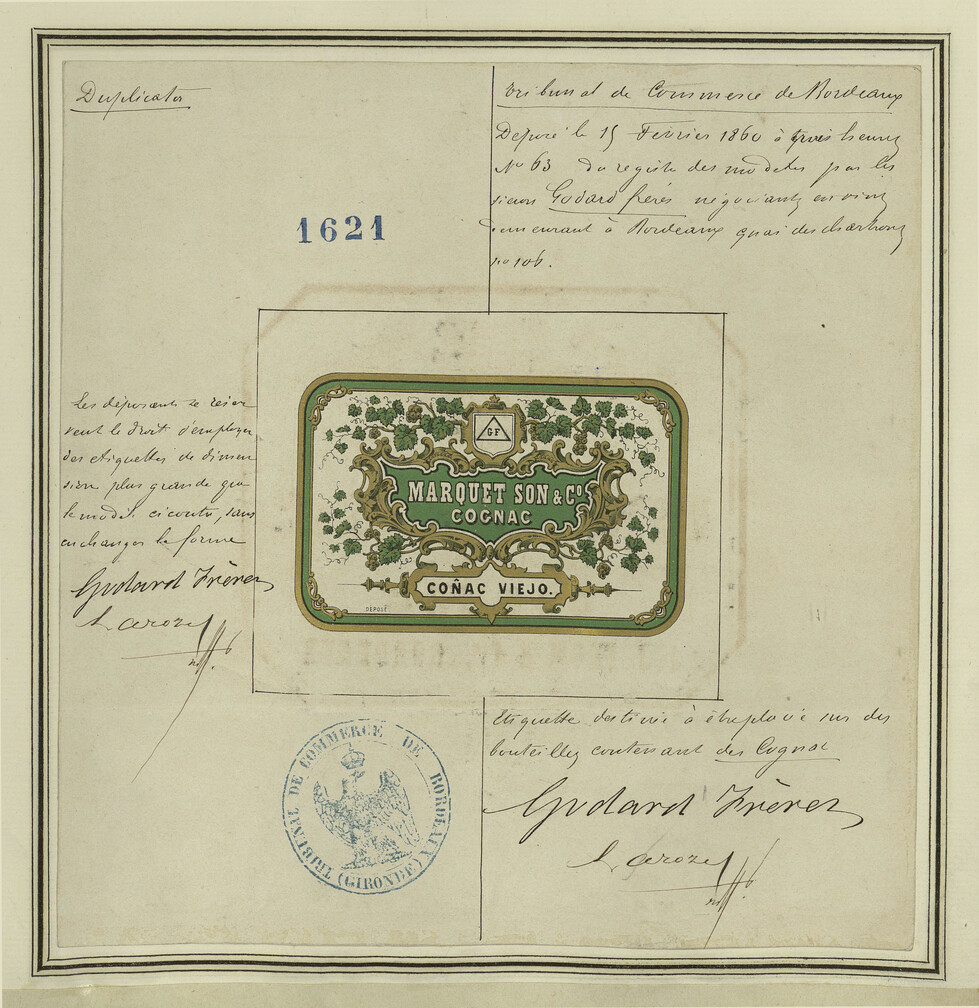 Duplicata
1621
Tribunal de Commerce de Bordeaux
Déposé le 15 Février 1860 à trois heures
No 63 du registre des modèles par les
sieurs Godard frères négociants en vins
demeurant à Bordeaux quai des chartrons
no 106.
Les déposants se réser
vent le droit d'employer
des étiquettes de dimen
sion plus grande que
le modèle ci contre, sans
en changer la forme
Godard Frères
Laroze
GF
MARQUET SON & Co
COGNAC
COÑAC VIEJO.
DÉPOSÉ
TRIBUNAL DE COMMERCE DE BORDEAUX (GIRONDE)
Etiquette destinée à être placée sur des
bouteilles contenant du Cognac
Godard Frères
Laroze